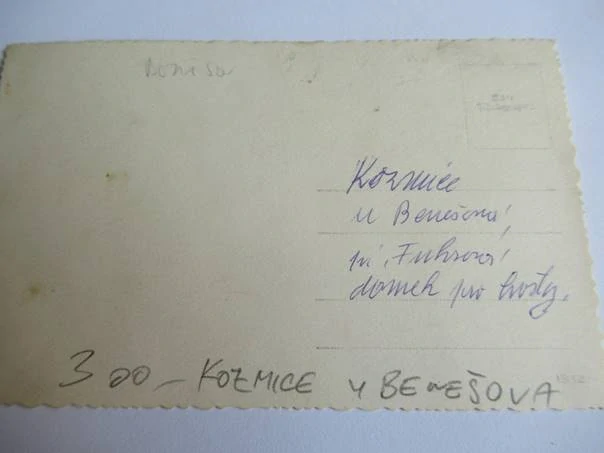 Kozmice
u Benešova,
pí. Fuhrová,
domek pro hosty.
3 00 - KOZMICE u BENEŠOVA